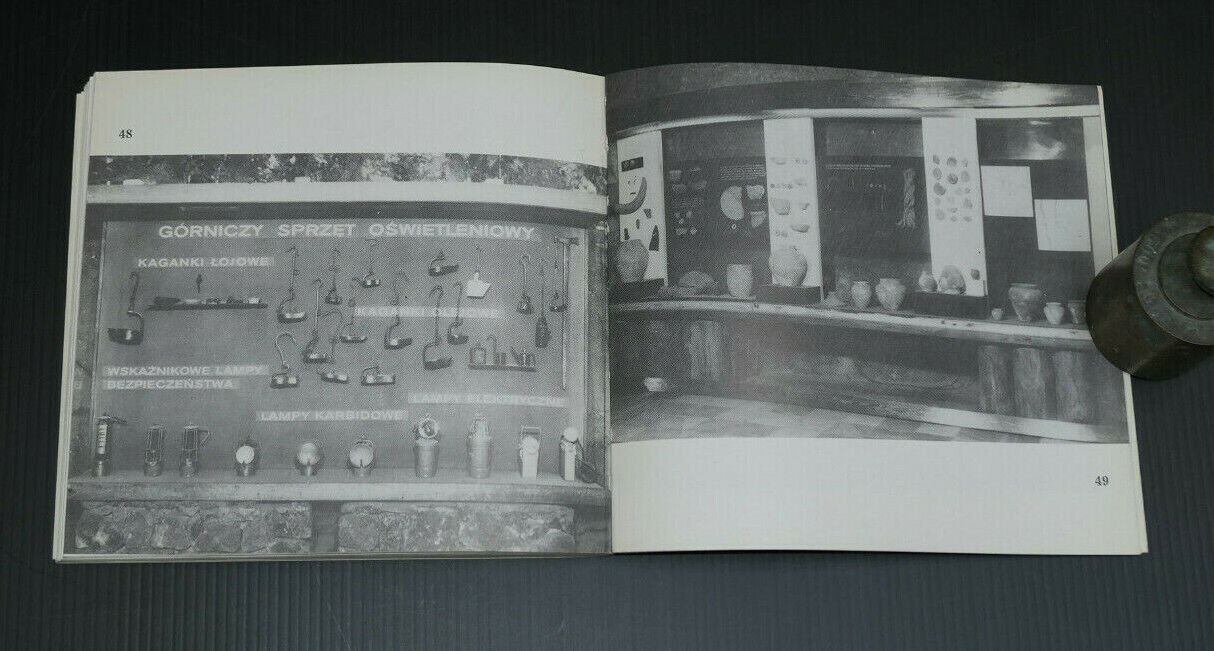 48
GÓRNICZY SPRZĘT OŚWIETLENIOWY
KAGANKI ŁOJOWE
KAGANKI OLEJOWE
WSKAŹNIKOWE LAMPY
BEZPIECZEŃSTWA
LAMPY ELEKTRYCZNE
LAMPY KARBIDOWE
49